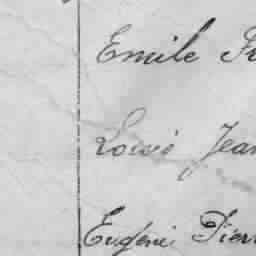 Emile
Louis Jean
Eugène Pierr